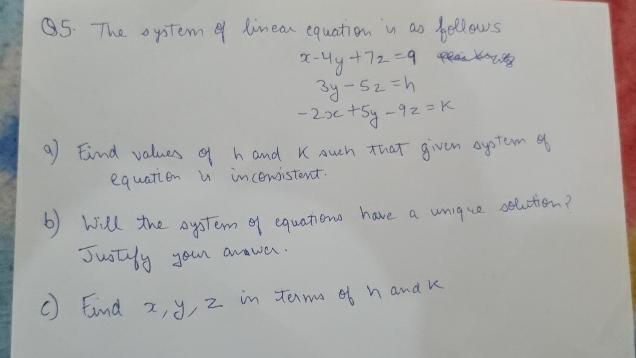 Q5. The system of linear equation is as follows
x-4y+7z=9
3y-5z=h
-2x+5y-9z=K
a) Find values of h and K such that given system of
equation is inconsistent.
b) Will the system of equations have a unique solution?
Justify your answer.
c) Find x, y, z in terms of h and K